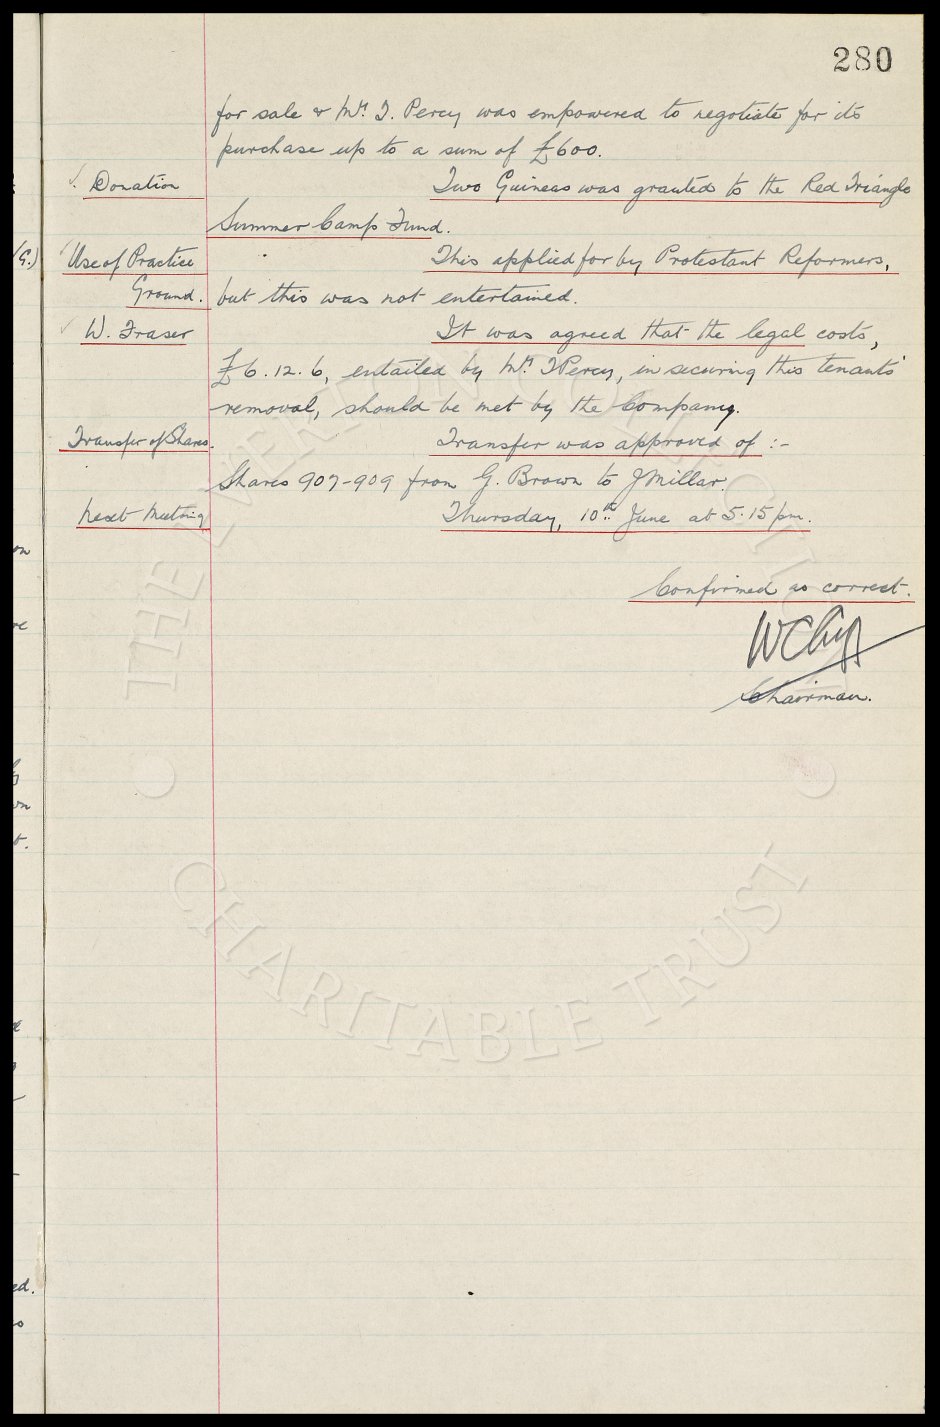 280
for sale & Mr. T. Percy was empowered to negotiate for its
purchase up to a sum of £600.
Donation
Two Guineas was granted to the Red Triangle
Summer Camp Fund.
Use of Practice
This applied for by Protestant Reformers,
Ground.
but this was not entertained.
W. Fraser
It was agreed that the legal costs,
£6.12.6, entailed by Mr. T Percy, in securing this tenants'
removal, should be met by the Company.
Transfer of Shares.
Transfer was approved of :-
Shares 907-909 from G. Brown to J Millar.
Next Meeting
Thursday, 10th June at 5.15 pm.
Confirmed as correct.
W C
Chairman.
THE EVERTON COLLECTION
CHARITABLE TRUST